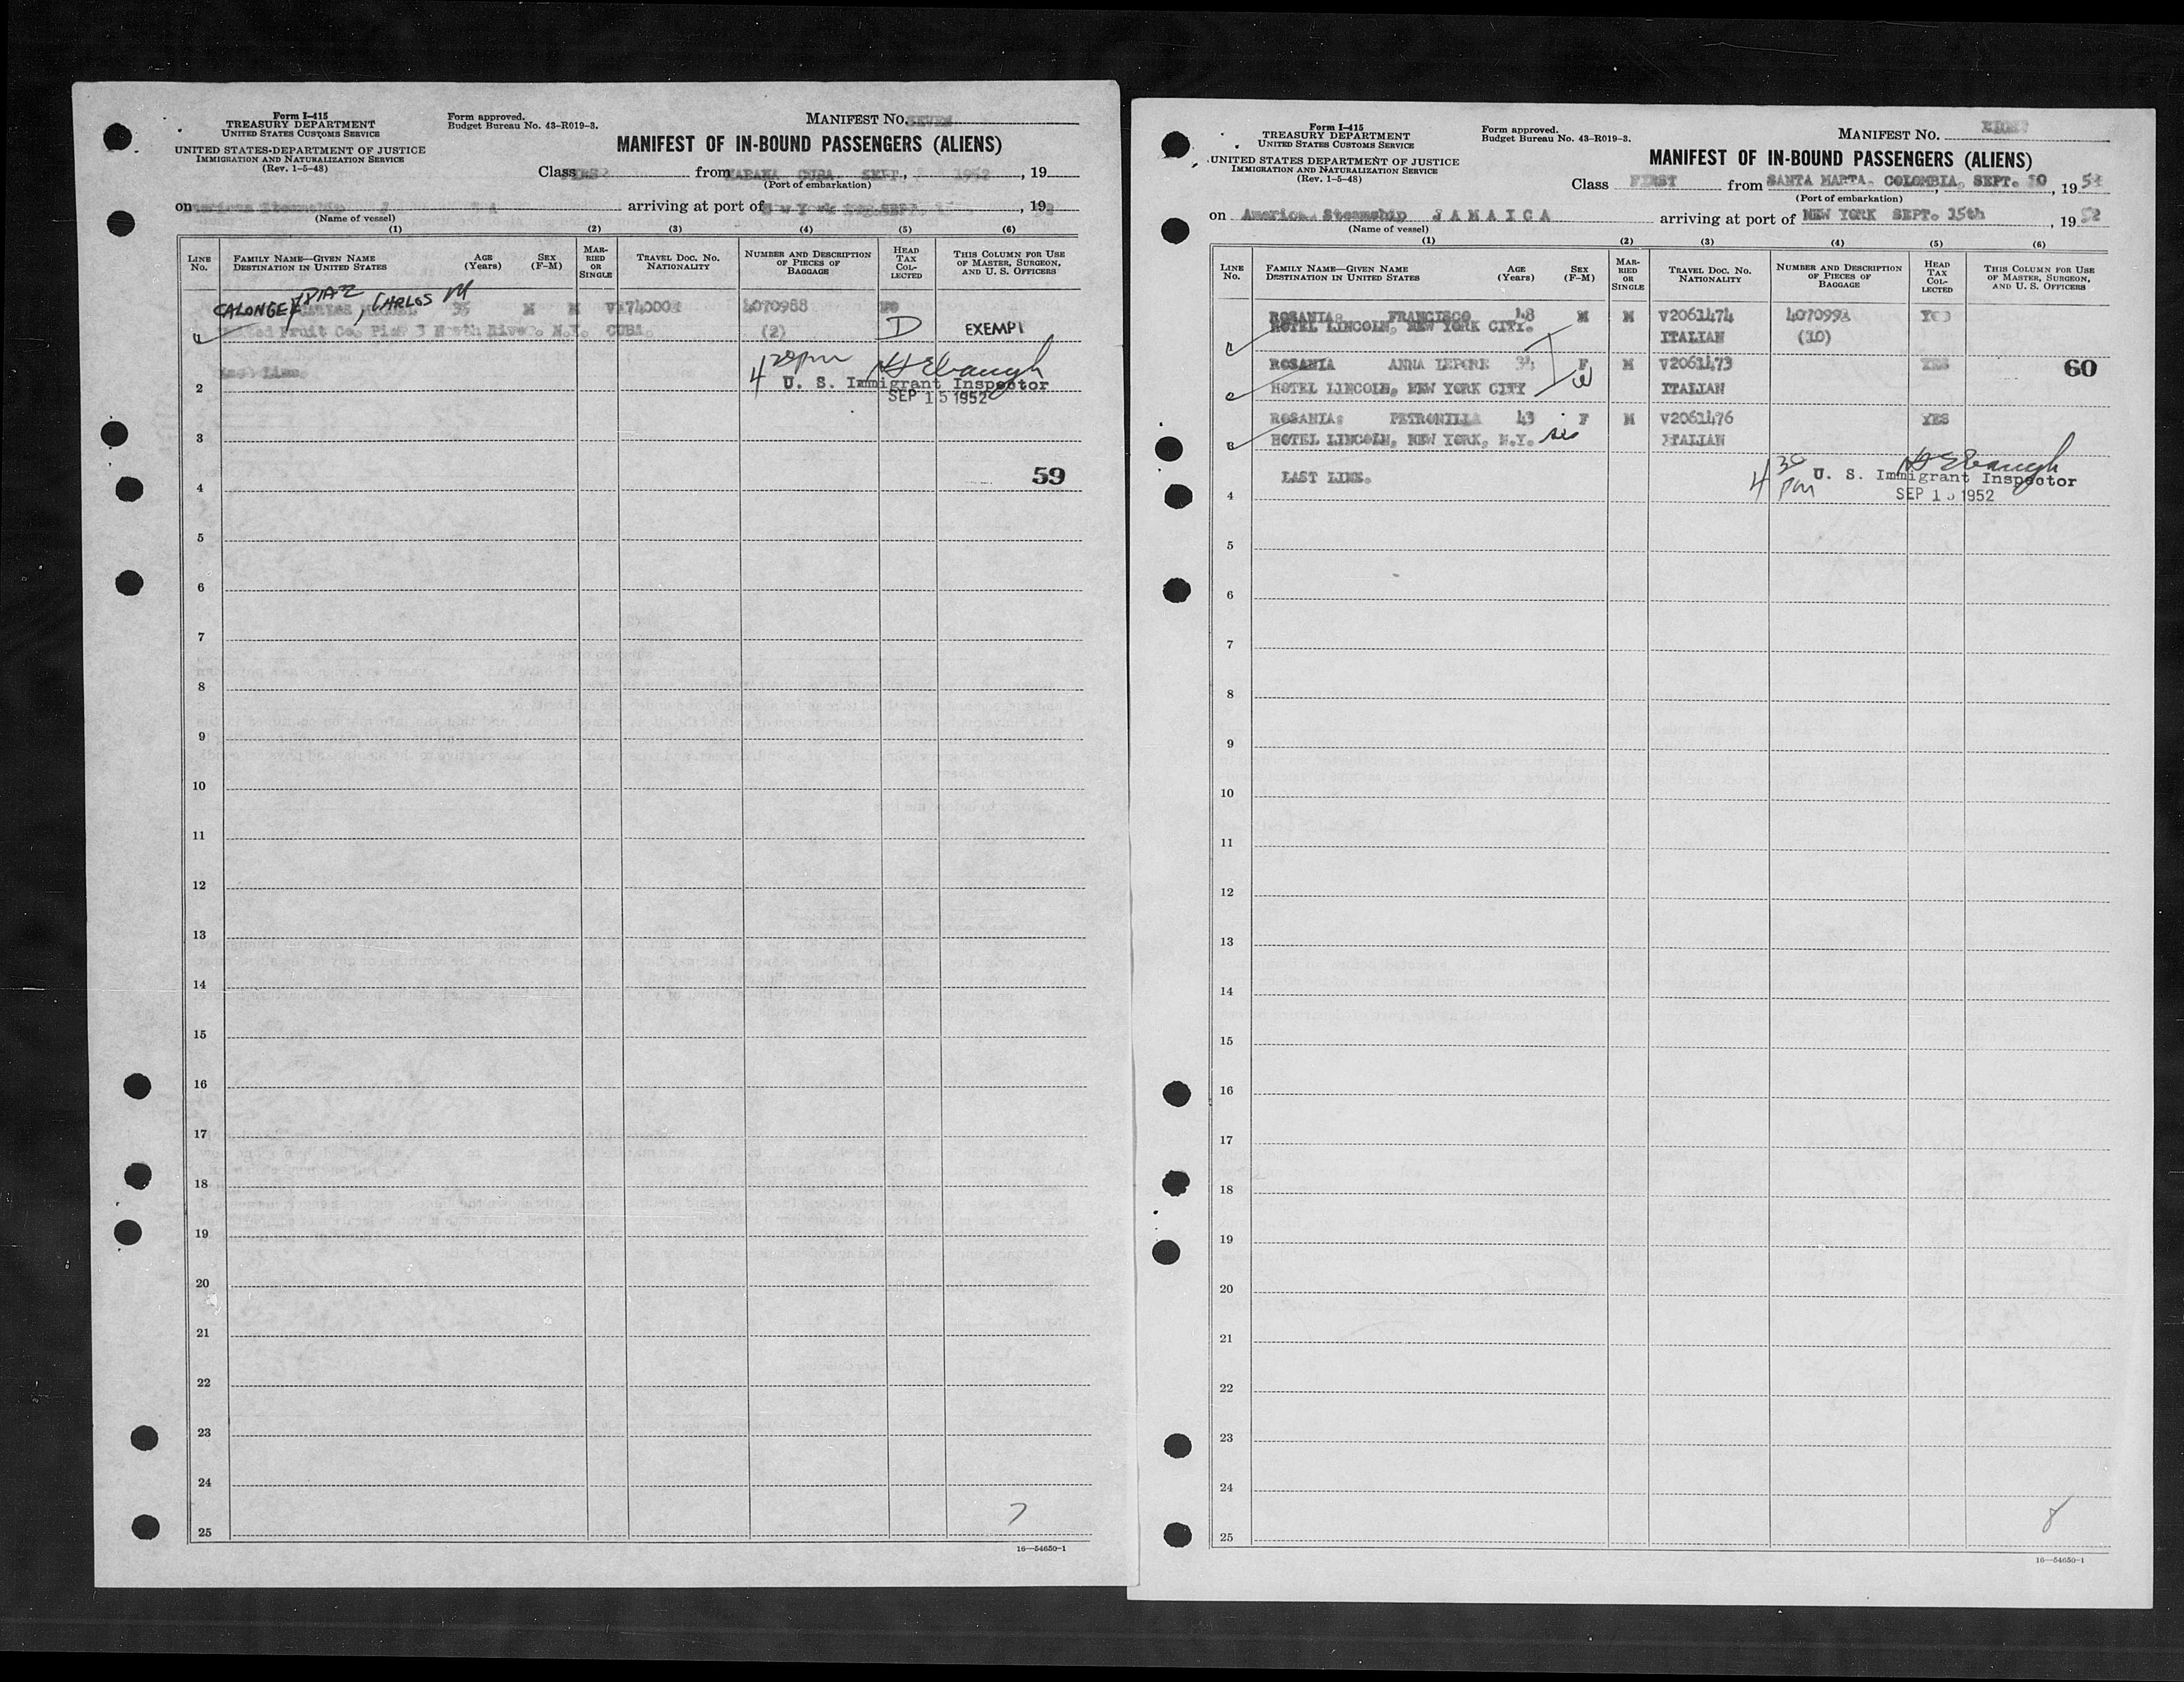 Form I-415
TREASURY DEPARTMENT
UNITED STATES CUSTOMS SERVICE
UNITED STATES DEPARTMENT OF JUSTICE
IMMIGRATION AND NATURALIZATION SERVICE
(Rev. 1-5-48)
Form approved.
Budget Bureau No. 43-R019-3.
MANIFEST No. SEVEN
MANIFEST OF IN-BOUND PASSENGERS (ALIENS)
Class FIRST from HABANA CUBA, SEPT. 1952, 19
(Port of embarkation)
on American Steamship arriving at port of New York SEPT. , 19
(Name of vessel)
(1) (2) (3) (4) (5) (6)
LINE No. FAMILY NAME—GIVEN NAME DESTINATION IN UNITED STATES AGE (Years) SEX (F-M) MARRIED OR SINGLE TRAVEL DOC. NO. NATIONALITY NUMBER AND DESCRIPTION OF PIECES OF BAGGAGE HEAD TAX COLLECTED THIS COLUMN FOR USE OF MASTER, SURGEON, AND U. S. OFFICERS
CALONGE DIAZ, CARLOS M
35 M M 4070988
1 Fruit Co. Pier 3 North River. N.Y. CUBA. (2) D EXEMPT
4 20pm
2 U. S. Immigrant Inspector
SEP 15 1952
3
4 59
5
6
7
8
9
10
11
12
13
14
15
16
17
18
19
20
21
22
23
24
7
25
16—54650-1
Form I-415
TREASURY DEPARTMENT
UNITED STATES CUSTOMS SERVICE
UNITED STATES DEPARTMENT OF JUSTICE
IMMIGRATION AND NATURALIZATION SERVICE
(Rev. 1-5-48)
Form approved.
Budget Bureau No. 43-R019-3.
MANIFEST No. EIGHT
MANIFEST OF IN-BOUND PASSENGERS (ALIENS)
Class FIRST from SANTA MARTA. COLOMBIA. SEPT. 10, 19
(Port of embarkation)
on American Steamship JAMAICA arriving at port of NEW YORK SEPT. 15th, 1952
(Name of vessel)
(1) (2) (3) (4) (5) (6)
LINE No. FAMILY NAME—GIVEN NAME DESTINATION IN UNITED STATES AGE (Years) SEX (F-M) MARRIED OR SINGLE TRAVEL DOC. NO. NATIONALITY NUMBER AND DESCRIPTION OF PIECES OF BAGGAGE HEAD TAX COLLECTED THIS COLUMN FOR USE OF MASTER, SURGEON, AND U. S. OFFICERS
ROSANIA: FRANCISCO 48 M M V2061474 YES
HOTEL LINCOLN, NEW YORK CITY. ITALIAN (10)
1
ROSANIA ANNA LEPORE F M V2061473 YES 60
2 HOTEL LINCOLN, NEW YORK CITY ITALIAN
ROSANIA: PETRONILLA 43 F M V2061476 YES
3 HOTEL LINCOLN, NEW YORK, N.Y. ITALIAN
LAST LINE. 4 30 pm U. S. Immigrant Inspector
4 SEP 15 1952
5
6
7
8
9
10
11
12
13
14
15
16
17
18
19
20
21
22
23
24
8
25
16—54650-1